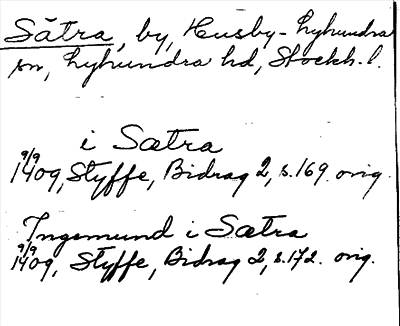 Sätra, by, Husby-Lyhundra
sn, Lyhundra hd, Stockh. l.
i Sætra
9/9
1409, Styffe, Bidrag 2, s. 169. orig.
Ingemund i Sætra
9/9
1409, Styffe, Bidrag 2, s. 172. orig.